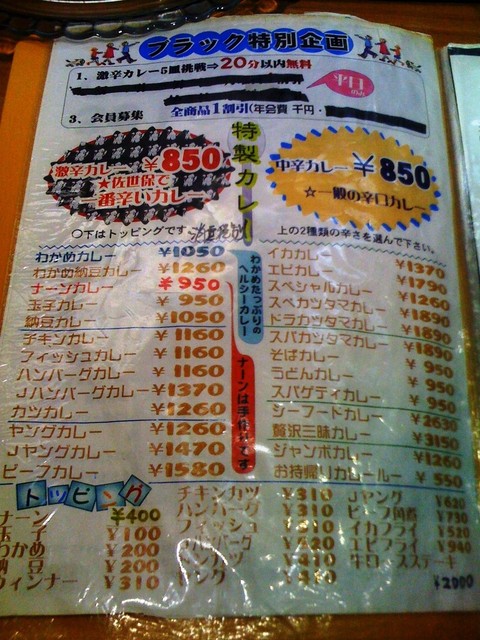 ブラック特別企画
1、激辛カレー5皿挑戦⇒20分以内無料
平日のみ
3、会員募集 全商品1割引(年会費 千円・
特製カレー
激辛カレー ¥850
★佐世保で
一番辛いカレー
中辛カレー ¥850
☆一般の辛口カレー
○下はトッピングです
上の2種類の辛さを選んで下さい。
わかめカレー ¥1050
わかめ納豆カレー ¥1260
ナーンカレー ¥950
玉子カレー ¥950
納豆カレー ¥1050
チキンカレー ¥1160
フィッシュカレー ¥1160
ハンバーグカレー ¥1160
Jハンバーグカレー ¥1370
カツカレー ¥1260
ヤングカレー ¥1260
Jヤングカレー ¥1470
ビーフカレー ¥1580
わかめたっぷりの
ヘルシーカレー
ナーンは手作りです
イカカレー ¥1370
エビカレー ¥1790
スペシャルカレー ¥1260
スペカツタマカレー ¥1890
ドラカツタマカレー ¥1890
スパカツタマカレー ¥1890
そばカレー ¥950
うどんカレー ¥950
スパゲティカレー ¥950
シーフードカレー ¥2630
贅沢三昧カレー ¥3150
ジャンボカレー ¥1260
お持帰りカレールー ¥550
トッピング
ナーン ¥400
玉子 ¥100
わかめ ¥200
納豆 ¥200
ウィンナー ¥310
チキンカツ ¥310
ハンバーグ ¥310
フィッシュ ¥310
Jハンバーグ ¥520
Jヤング ¥620
ビーフ角煮 ¥730
イカフライ ¥520
エビフライ ¥940
牛ロースステーキ
¥2000